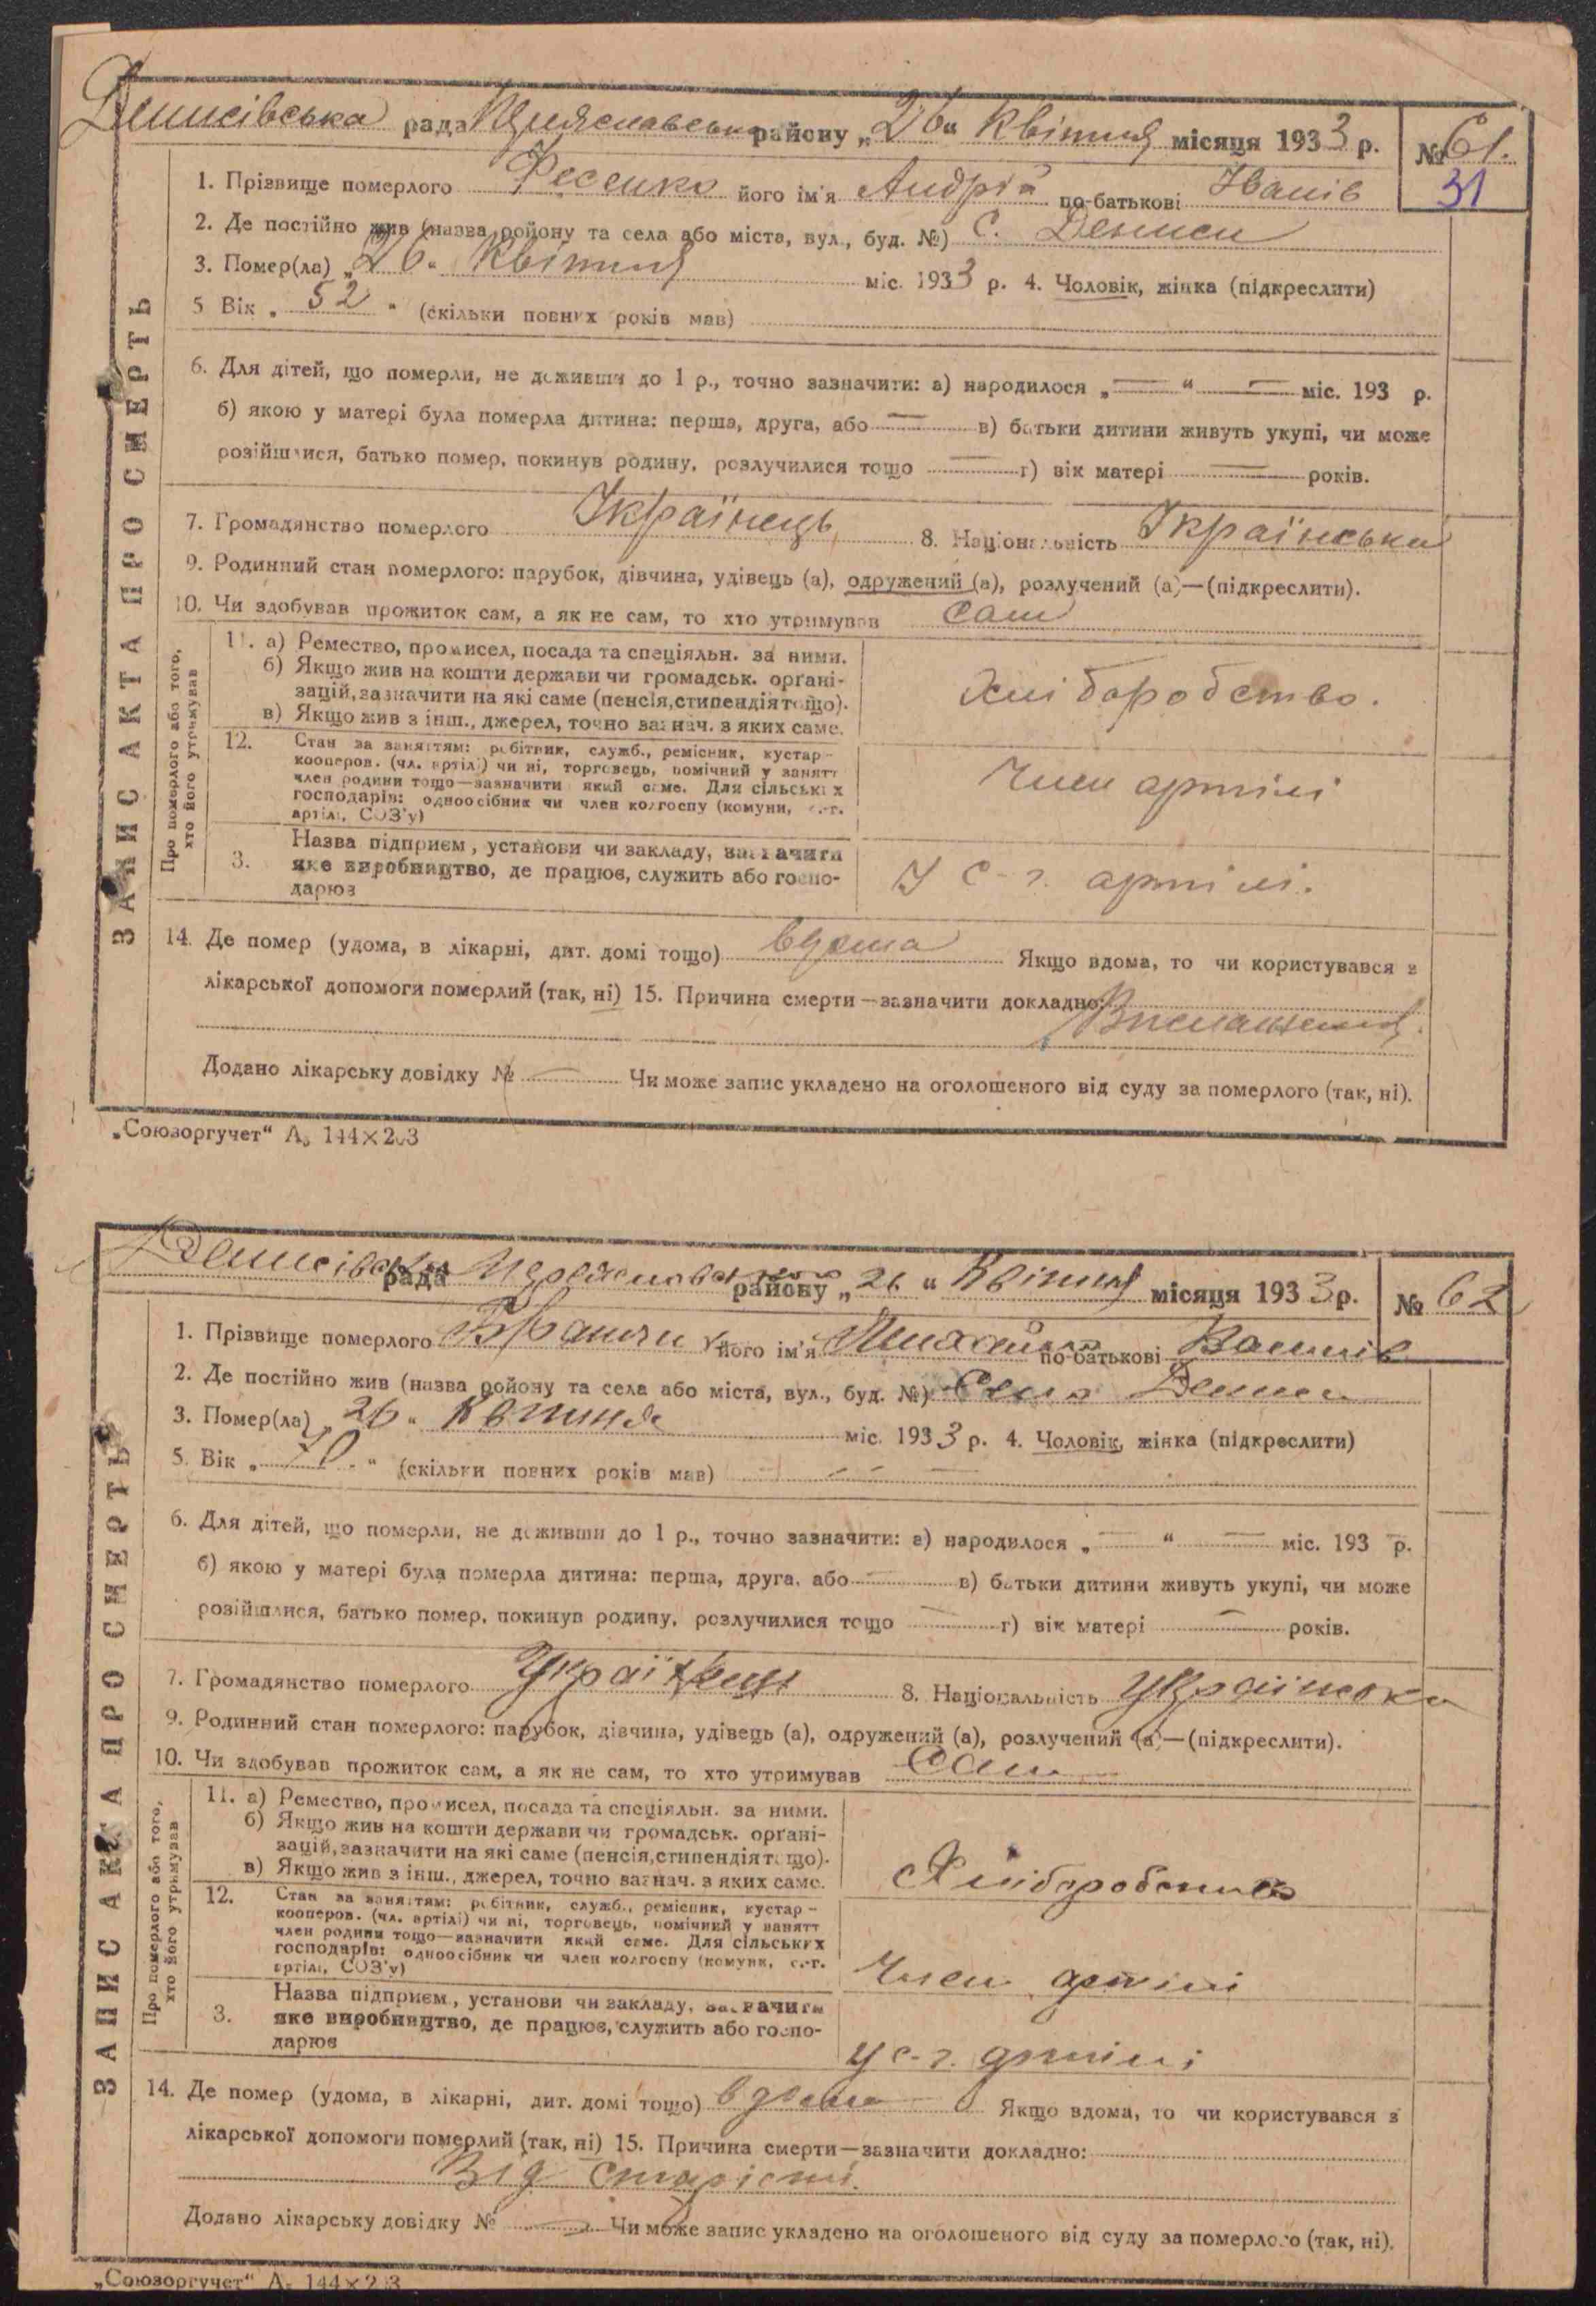 Денисівська рада Переяславськ району „26“ Квітня місяця 1933 р. № 61.
31
1. Прізвище померлого Фесенко його ім'я Андрій по-батькові Іванів
2. Де постійно жив (назва району та села або міста, вул., буд. №) С. Дениси
3. Помер(ла) „26“ Квітня міс. 1933 р. 4. Чоловік, жінка (підкреслити)
5 Вік „52“ (скільки повних років мав)
6. Для дітей, що померли, не доживши до 1 р., точно зазначити: а) народилося „—“ — міс. 193 р.
б) якою у матері була померла дитина: перша, друга, або — в) батьки дитини живуть укупі, чи може
розійшлися, батько помер, покинув родину, розлучилися тощо — г) вік матері — років.
7. Громадянство померлого Українець 8. Національність Українська
9. Родинний стан померлого: парубок, дівчина, удівець (а), одружений (а), розлучений (а)—(підкреслити).
10. Чи здобував прожиток сам, а як не сам, то хто утримував сам
ЗАПИС АКТА ПРО СМЕРТЬ
Про померлого або того,
хто його утримував
11. а) Ремество, промисел, посада та спеціяльн. за ними.
б) Якщо жив на кошти держави чи громадськ. орґані-
зацій, зазначити на які саме (пенсія, стипендія тощо).
в) Якщо жив з інш., джерел, точно зазнач. з яких саме.
Хліборобство.
12. Стан за заняттям: робітник, служб., ремісник, кустар-
кооперов. (чл. артілі) чи ні, торговець, помічний у занятт
член родини тощо—зазначити який саме. Для сільських
господарів: одноосібник чи член колгоспу (комуни, с.-г.
артілі, СОЗ'у)
Член артілі
3. Назва підприєм., установи чи закладу, зазначити
яке виробництво, де працює, служить або госпо-
дарює
У с-г. артілі.
14. Де помер (удома, в лікарні, дит. домі тощо) вдома Якщо вдома, то чи користувався з
лікарської допомоги померлий (так, ні) 15. Причина смерти—зазначити докладно:
Виснаження.
Додано лікарську довідку № — Чи може запис укладено на оголошеного від суду за померлого (так, ні).
„Союзоргучет“ А5 144×203
Денисівська рада Переяславського району „26“ Квітня місяця 1933 р. № 62
1. Прізвище померлого його ім'я Михайло по-батькові
2. Де постійно жив (назва району та села або міста, вул., буд. №) Село Дениси
3. Помер(ла) „26“ Квітня міс. 1933 р. 4. Чоловік, жінка (підкреслити)
5. Вік „70“ (скільки повних років мав) — — —
6. Для дітей, що померли, не доживши до 1 р., точно зазначити: а) народилося „—“ — міс. 193 р.
б) якою у матері була померла дитина: перша, друга, або — в) батьки дитини живуть укупі, чи може
розійшлися, батько помер, покинув родину, розлучилися тощо — г) вік матері — років.
7. Громадянство померлого Українець 8. Національність Українська
9. Родинний стан померлого: парубок, дівчина, удівець (а), одружений (а), розлучений (а)—(підкреслити).
10. Чи здобував прожиток сам, а як не сам, то хто утримував Сам
ЗАПИС АКТА ПРО СМЕРТЬ
Про померлого або того,
хто його утримував
11. а) Ремество, промисел, посада та спеціяльн. за ними.
б) Якщо жив на кошти держави чи громадськ. орґані-
зацій, зазначити на які саме (пенсія, стипендія тощо).
в) Якщо жив з інш., джерел, точно зазнач. з яких саме.
Хліборобство
12. Стан за заняттям: робітник, служб., ремісник, кустар-
кооперов. (чл. артілі) чи ні, торговець, помічний у занятт
член родини тощо—зазначити який саме. Для сільських
господарів: одноосібник чи член колгоспу (комуни, с.-г.
артілі, СОЗ'у)
Член артілі
3. Назва підприєм., установи чи закладу, зазначити
яке виробництво, де працює, служить або госпо-
дарює
у с-г. артілі
14. Де помер (удома, в лікарні, дит. домі тощо) вдома Якщо вдома, то чи користувався з
лікарської допомоги померлий (так, ні) 15. Причина смерти—зазначити докладно:
Від старісті.
Додано лікарську довідку № — Чи може запис укладено на оголошеного від суду за померлого (так, ні).
„Союзоргучет“ А5 144×203